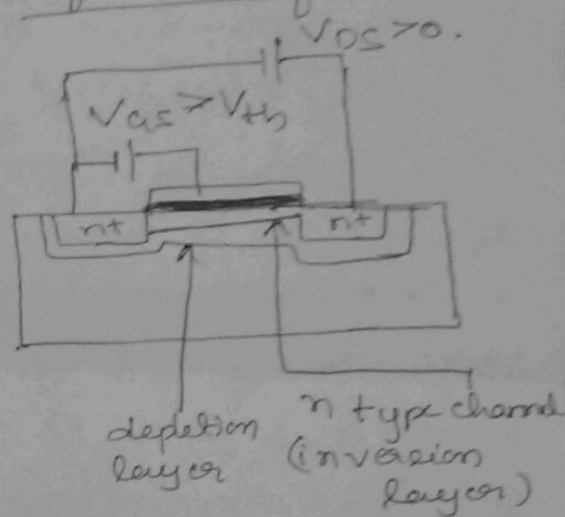 VDS >0.
VGS > Vth
n+ n+
depletion
layer
n type channel
(inversion
layer)